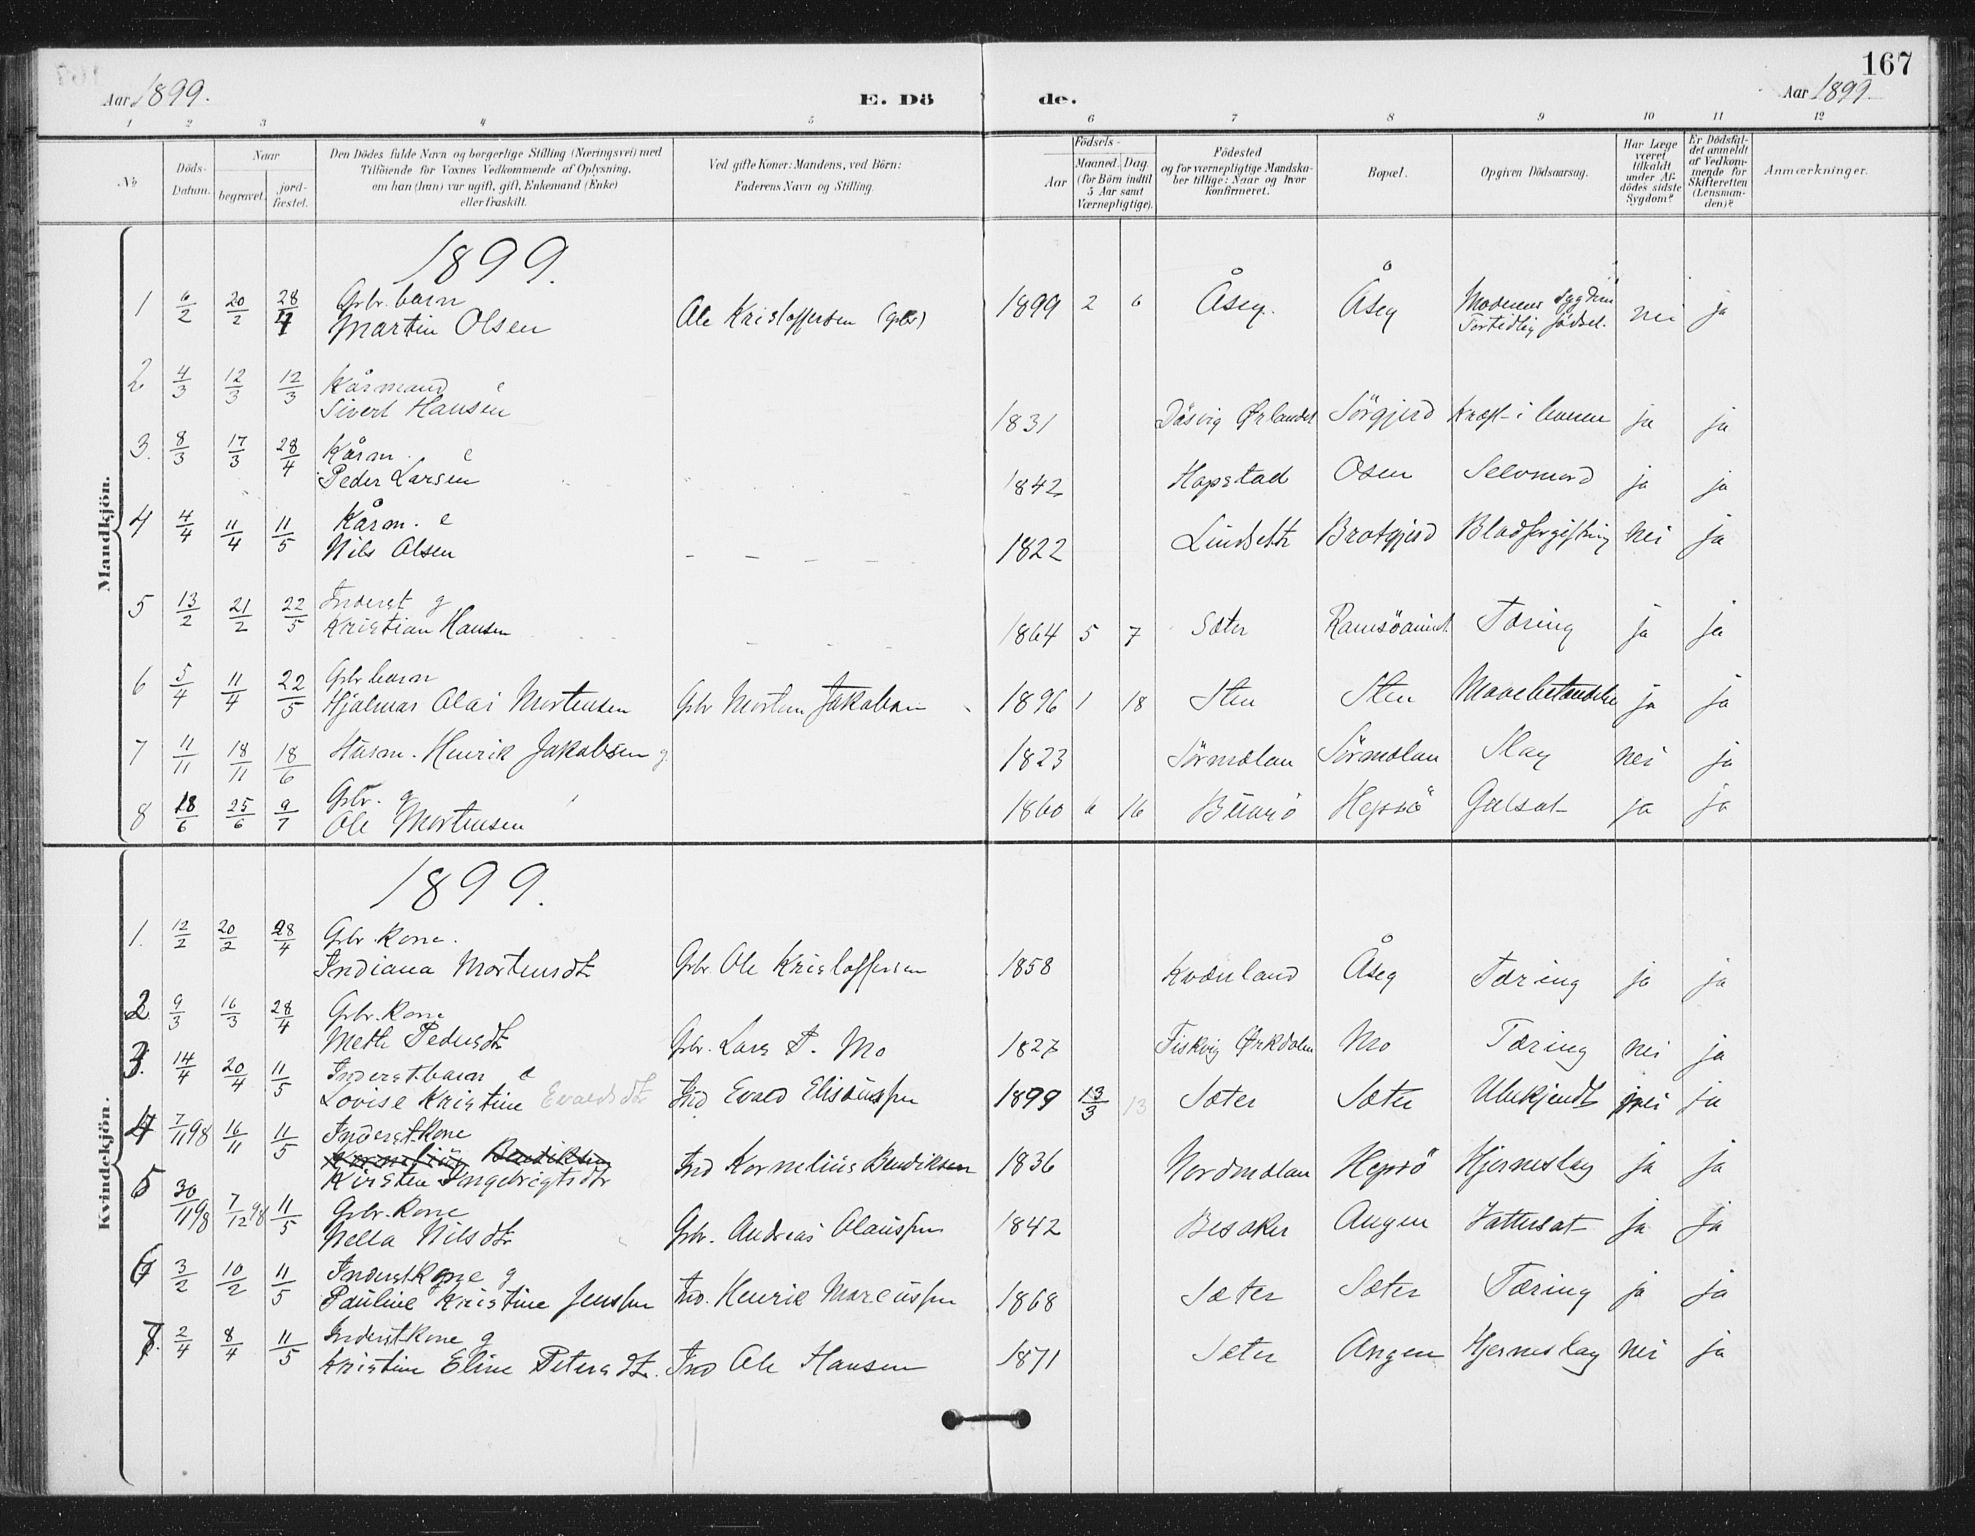 167
Aar 1899.
E. Dö de.
Aar 1899.
1 2 3 4 5 6 7 8 9 10 11 12
No
Döds-Datum.
Naar
begravet.
jord-fæstet.
Den Dödes fulde Navn og borgerlige Stilling (Næringsvei) med
Tilföiende for Voxnes Vedkommende af Oplysning,
om han (hun) var ugift, gift, Enkemand (Enke)
eller fraskilt.
Ved gifte Koner: Mandens, ved Börn:
Faderens Navn og Stilling.
Födsels-
Aar
Maaned. Dag.
(for Börn indtil
5 Aar samt
Værnepligtige).
Födested
og for værnepligtige Mandska-
ber tillige: Naar og hvor
konfirmeret.
Bopæl.
Opgiven Dödsaarsag.
Har Læge
været
tilkaldt
under Af-
dödes sidste
Sygdom?
Er Dödsfal-
det anmeldt
af Vedkom-
mende for
Skifteretten
(Lensman-
den)?
Anmærkninger.
Mandkjön.
1899.
1 6/2 20/2 28/4 Gbr. barn
Martin Olsen Ole Kristoffersen (gbr) 1899 2 6 Åseg. Åseg Moderens Sygdom
Fortidlig födsel. nei ja
2 4/3 12/3 12/3 Kårmand e
Sivert Hansen 1831 Ørlandet Sörgjerd Kræft i ja ja
3. 8/3 17/3 28/4 Kårm. e
Peder Larsen 1842 Hopstad Osen Selvmord ja ja
4 4/4 11/4 11/5 Kårm. e
Nils Olsen 1822 Lindsetr Bratgjerd Blodforgiftning nei ja
5 13/2 21/2 22/5 Inderst g
Kristian Hansen 1864 5 7 Sæter Tæring ja ja
6 5/4 11/4 22/5 Gbr barn
Hjalmar Olai Mortensen Gbr Morten Jakobsen 1896 1 18 Sten Sten Mavebetændelse ja ja
7 11/11 18/11 18/6 Husm. Henrik Jakobsen g. 1823 Sörmælan Sörmælan Slag nei ja
8 18/6 25/6 9/7 Gbr. g
Ole Mortensen 1860 6 16 Hepsö Gulsot ja ja
Kvindekjön.
1899.
1. 12/2 20/2 28/4 Gbr. kone.
Indiana Mortensdtr Gbr. Ole Kristoffersen 1858 Kvænland Åseg Tæring ja ja
2. 9/3 16/3 28/4 Gbr. kone
Meth Pedersdtr Gbr. Lars P. Mo 1827 Fiskvig Ørkdalen Mo Tæring nei ja
3. 14/4 20/4 11/5 Inderst barn e
Lovise Kristine Evaldsdtr Ind Evald Elisæussen 1899 13/3 13 Sæter Sæter Ubekjendt nei ja
4 7/11 98 16/11 11/5 Inderstkone
Kirsten Ingebrigtsdtr Ind Kornelius Bendiksen 1836 Nordmælan Hepsö Hjerneslag ja ja
5 30/11 98 7/12 98 11/5 Gbr. kone
Nella Nilsdtr Gbr. Andreas Olaussen 1842 Besaker Angen Vattersot ja ja
6 3/2 10/2 11/5 Inderstkone g
Pauline Kristine Jenssen Ind. Henrik Marcussen 1868 Sæter Sæter Tæring ja ja
7. 2/4 8/4 11/5 Inderstkone g
Kristine Eline Petersdtr. Ind Ole Hansen 1871 Sæter Angen Hjerneslag nei ja